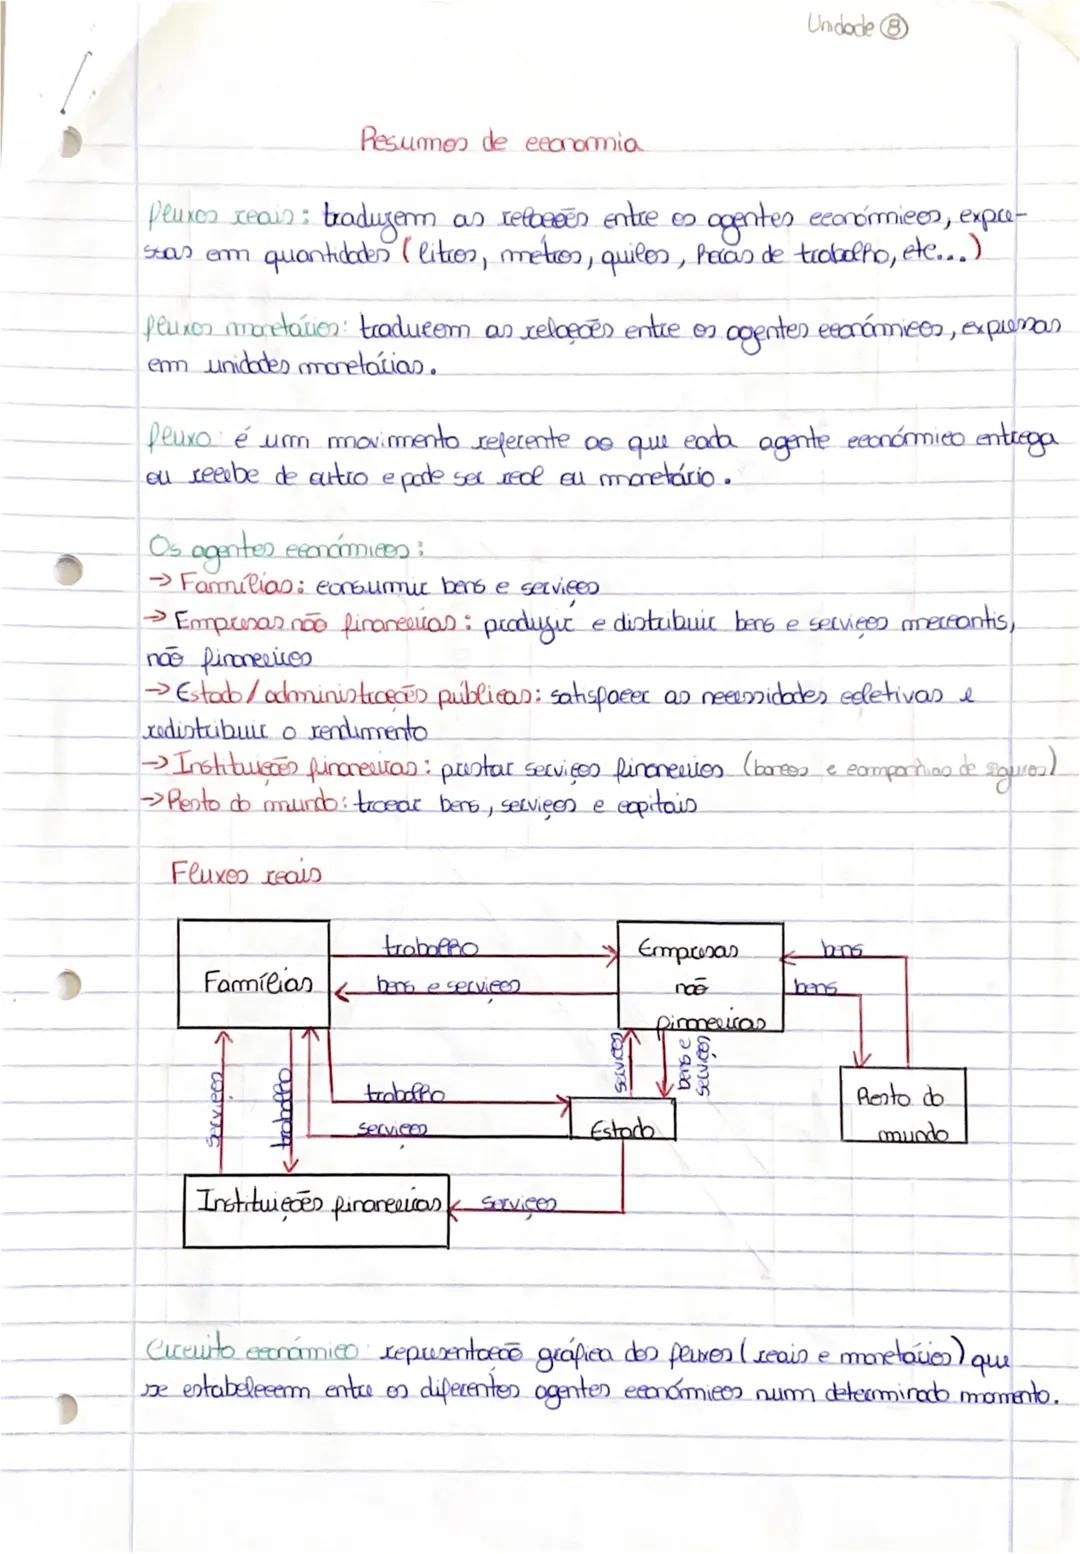 Unidade 8
Resumos de economia
fluxos reais: traduzem as relações entre os agentes económicos, expre-
ssas em quantidades (litros, metros, quilos, horas de trabalho, etc...)
fluxos monetários: traduzem as relações entre os agentes económicos, expressas
em unidades monetárias.
fluxo: é um movimento referente ao que cada agente económico entrega
ou recebe de outro e pode ser real ou monetário.
Os agentes económicos:
→ Famílias: consumir bens e serviços
→ Empresas não financeiras: produzir e distribuir bens e serviços mercantis,
não financeiros
→ Estado / administrações públicas: satisfazer as necessidades coletivas e
redistribuir o rendimento
→ Instituições financeiras: prestar serviços financeiros (bancos e companhias de seguros)
→ Resto do mundo: trocar bens, serviços e capitais
Fluxos reais
Famílias
trabalho
bens e serviços
Empresas
não
financeiras
bens
bens
serviços
trabalho
trabalho
serviços
serviços
bens e
serviços
Estado
Resto do
mundo
Instituições financeiras
serviços
Circuito económico: representação gráfica dos fluxos (reais e monetários) que
se estabelecem entre os diferentes agentes económicos num determinado momento.